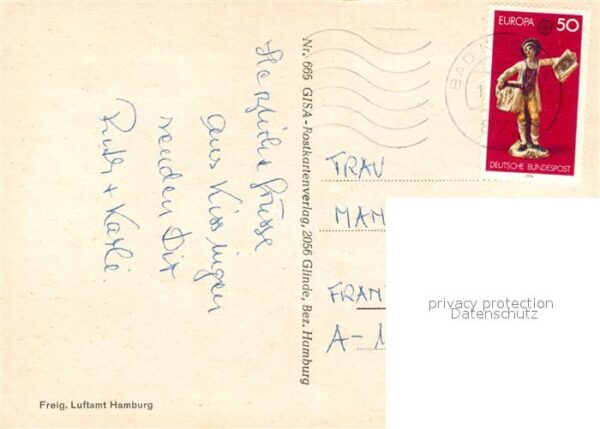 Herzliche Grüsse
aus Kissingen
senden Dir
Ruth +
Nr. 665 GISA-Postkartenverlag, 2056 Glinde, Bez. Hamburg
EUROPA 50
DEUTSCHE BUNDESPOST
BAD KISS
FRAU
MAN
FRAN
A-1
privacy protection
Datenschutz
Freig. Luftamt Hamburg